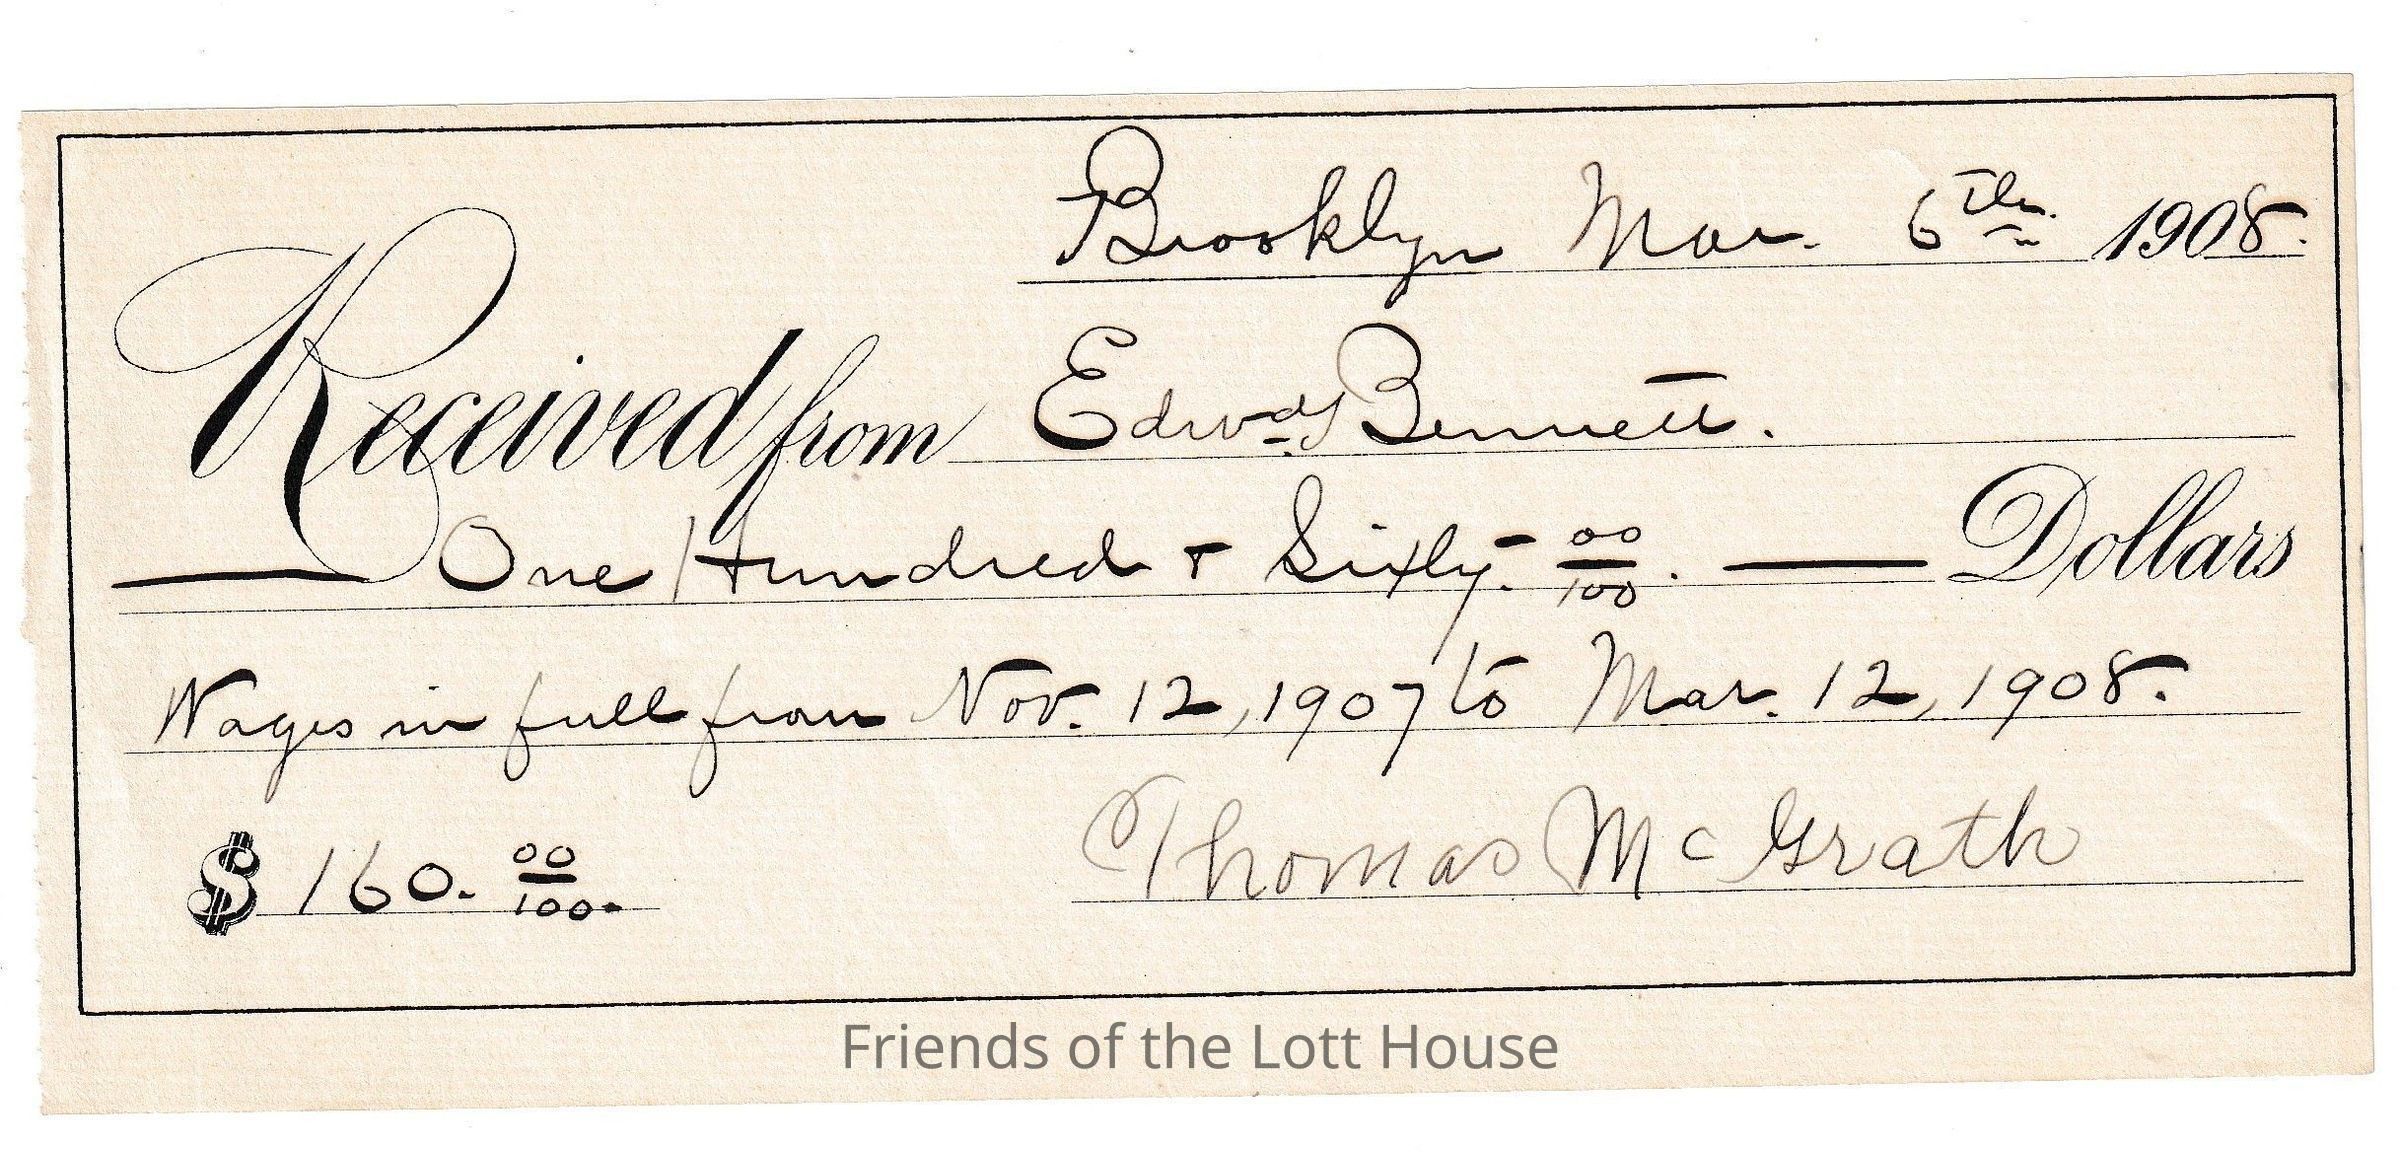 Brooklyn Mar. 6th 1908.
Received from Edwd Bennett.
One Hundred & Sixty 00/100. Dollars
Wages in full from Nov. 12, 1907 to Mar. 12, 1908.
$ 160. 00/100.
Thomas McGrath
Friends of the Lott House